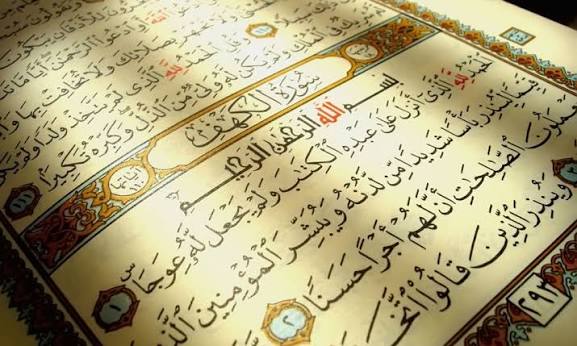 يَبْكُونَ
ٱدْعُوا۟ ٱلرَّحْمَٰنَ أَيًّا مَّا
بِصَلَاتِكَ وَلَا تُخَافِتْ بِهَا
لِلَّهِ ٱلَّذِى لَمْ يَتَّخِذْ وَلَدًا وَلَمْ يَكُن
وَلَمْ يَكُن لَّهُۥ وَلِىٌّ مِّنَ ٱلذُّلِّ وَكَبِّرْهُ تَكْبِيرًا
سُورَةُ ٱلْكَهْفِ
بِسْمِ ٱللَّهِ ٱلرَّحْمَٰنِ ٱلرَّحِيمِ
ٱلْحَمْدُ لِلَّهِ ٱلَّذِىٓ أَنزَلَ عَلَىٰ عَبْدِهِ ٱلْكِتَٰبَ وَلَمْ يَجْعَل لَّهُۥ عِوَجَا ۜ ١
قَيِّمًا لِّيُنذِرَ بَأْسًا شَدِيدًا مِّن لَّدُنْهُ وَيُبَشِّرَ ٱلْمُؤْمِنِينَ ٱلَّذِينَ
يَعْمَلُونَ ٱلصَّٰلِحَٰتِ أَنَّ لَهُمْ أَجْرًا حَسَنًا ٢
وَيُنذِرَ ٱلَّذِينَ قَالُوا۟ ٱتَّخَذَ
٢٩٣